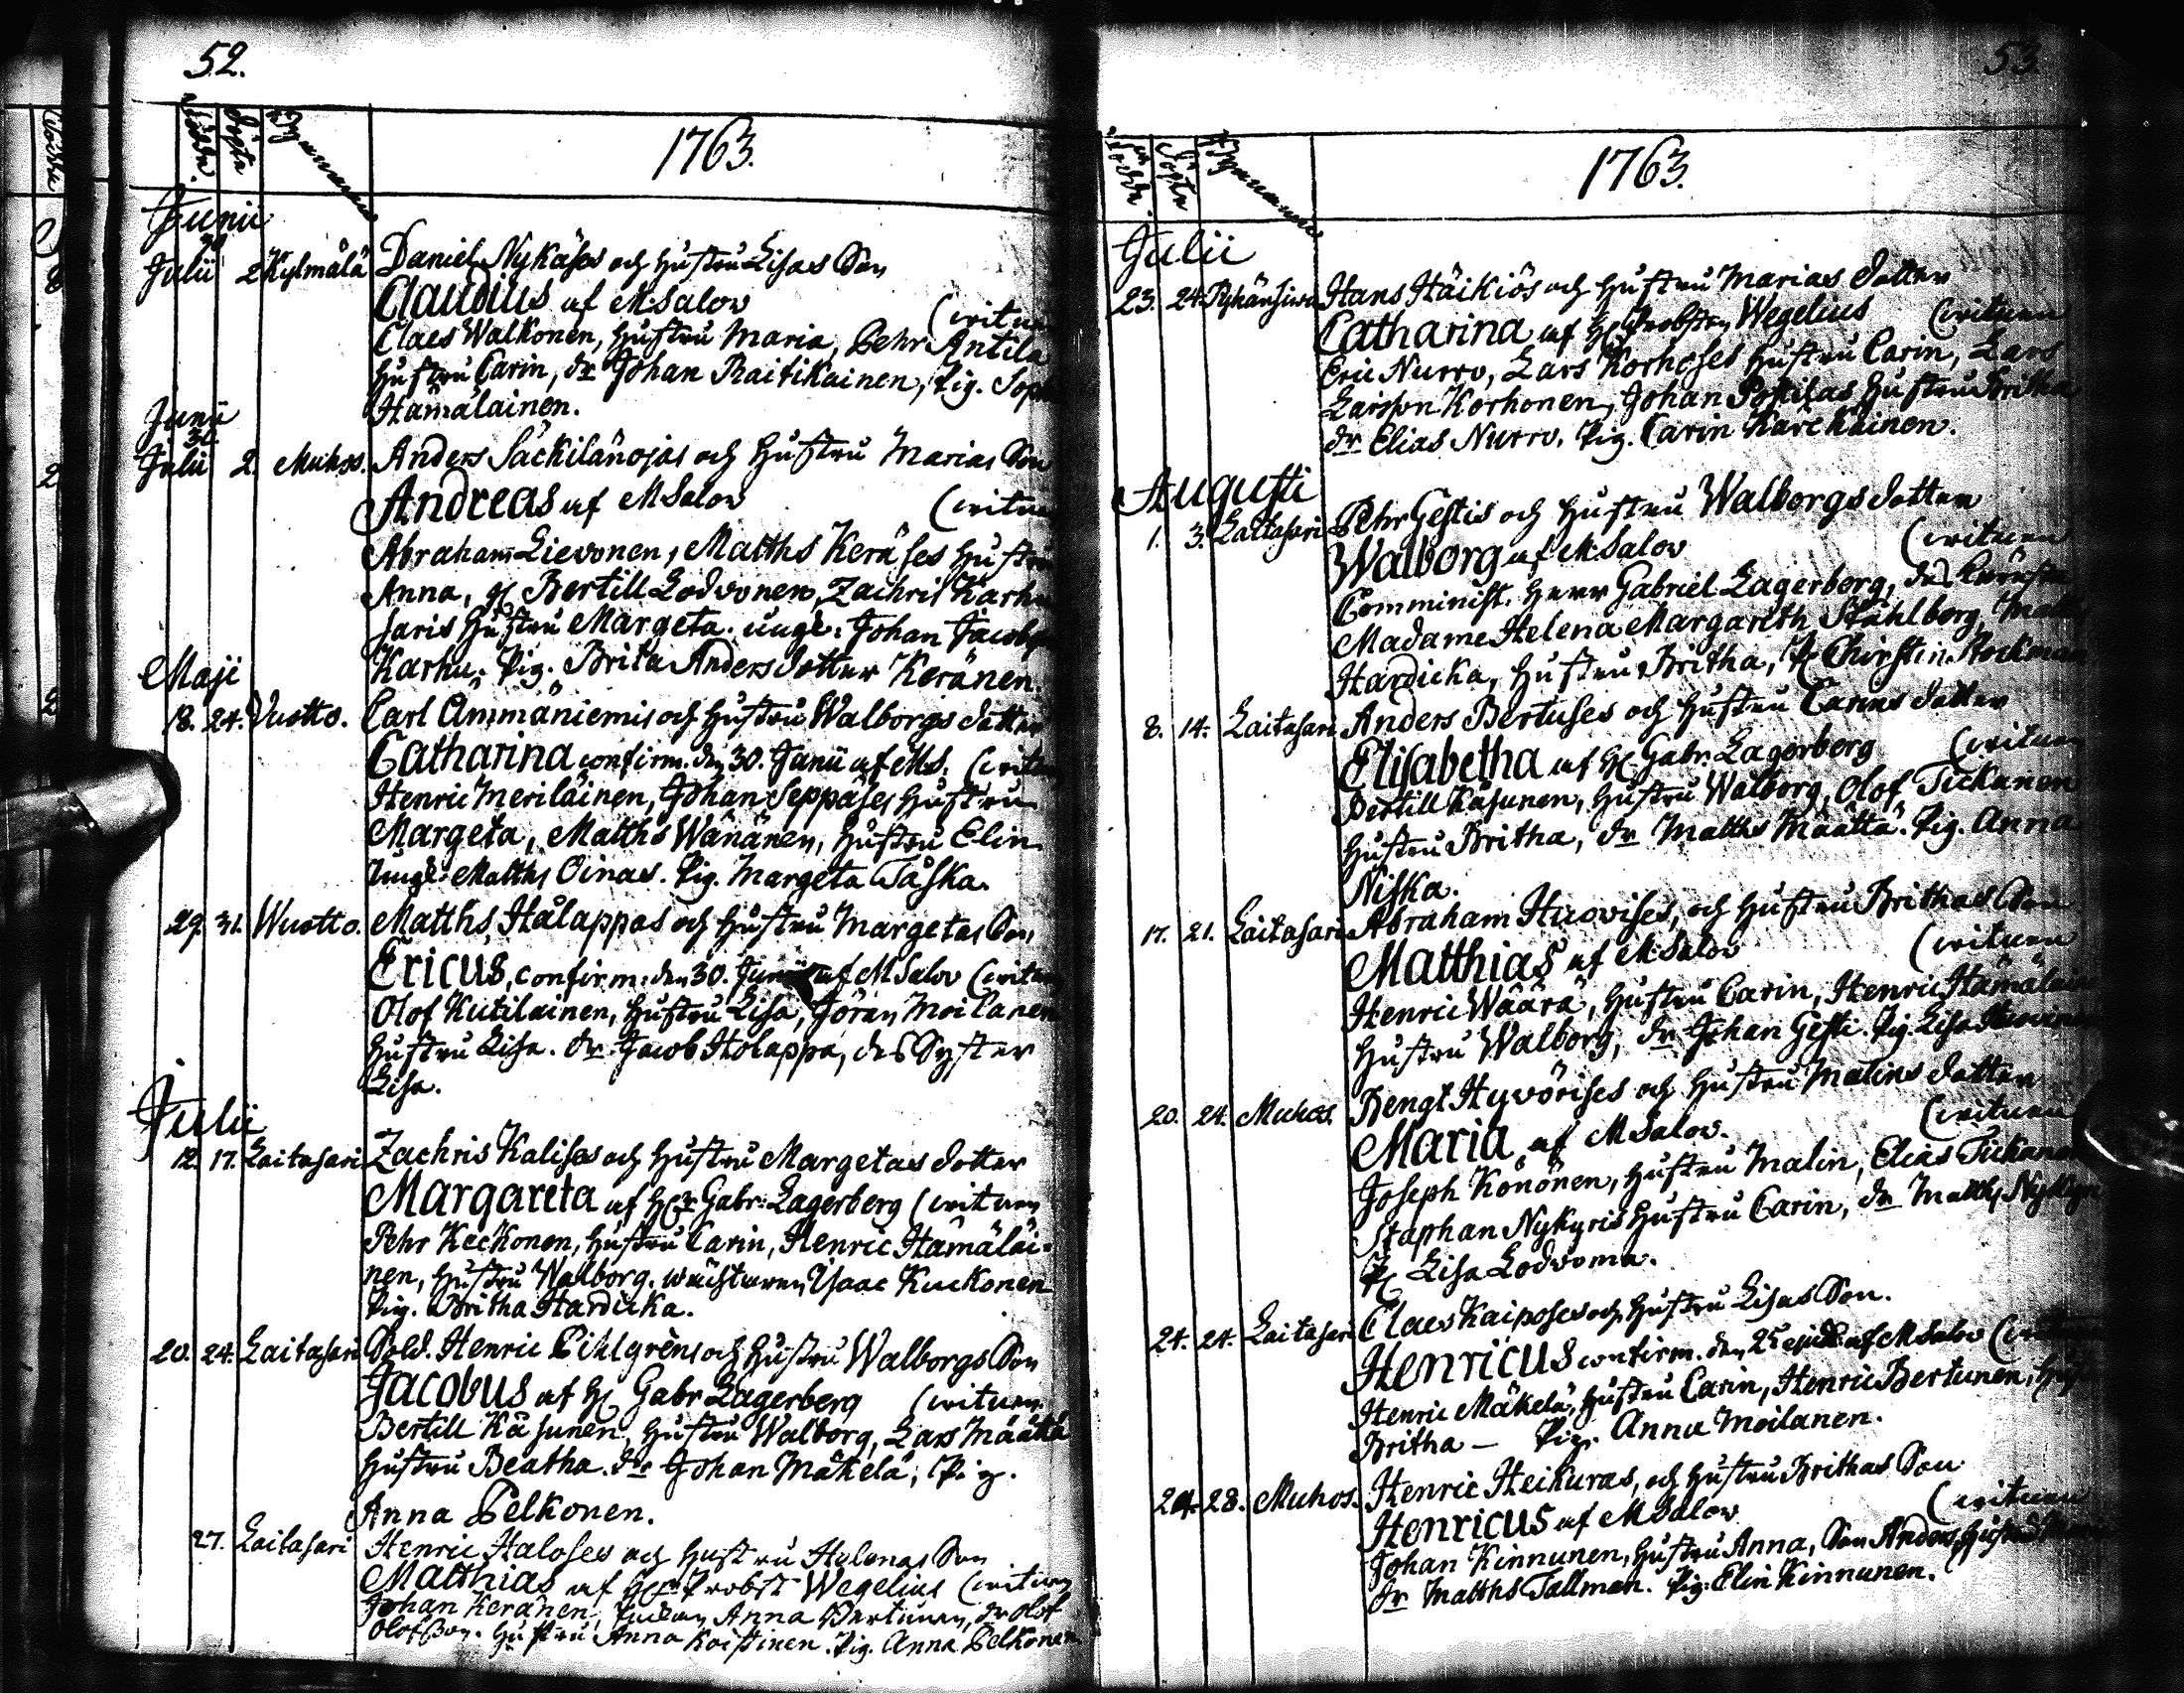 52.
Födde. Döpte Byanamn
1763.
Junii
30
Julii 2 Kylmälä Daniel Nykäses och Hustru Lisas Son
Claudius af M: Salov (vitnen
Claes Walkonen, Hustru Maria, Pehr Antila
Hustru Carin, dr Johan Raitikainen, Pig. Soph
Hämäläinen.
Junii
30.
Julii 2. Muhos. Anders Säckilänojas och Hustru Marias Son
Andreas af M Salov (vitnen
Abraham Lievonen, Matths Keräses Hustru
Anna, gl Bertill Lodvonen, Zachris Karhu
saris Hustru Margeta. ungk: Johan Jacobss
Karhu, Pig. Brita Anders dotter Keränen.
Maji
18. 24. Vuotto. Carl Ammäniemis och Hustru Walborgs dotter
Catharina confirm. den 30. Junii af MS. (vitnen
Henric Meriläinen, Johan Seppäses Hustru
Margeta, Matths Wänänen, Hustru Elin
Ungk: Matths Oinas. Pig. Margeta Taska.
29. 31. Wuotto. Matths Hålappas och Hustru Margetas Son
Ericus, confirm: den 30. Junii af M Salov (vitnen
Olof Kutilainen, Hustru Lisa, Jöran Moilanen
Hustru Lisa. dr Jacob Holappa, des Syster
Lisa.
Julii
12. 17. Laitasari Zachris Kalises och Hustru Margetas dotter
Margareta af Hr Gabr: Lagerberg (vitnen
Pehr Keckonen, Hustru Carin, Henric Hämäläi-
nen, Hustru Walborg. Isaac Kuckonen
Pig. Britha Hardicka.
20. 24. Laitasari Sold. Henric Pihlgrens och Hustru Walborgs Son
Jacobus af H: Gabr Lagerberg (vitnen
Bertill Käsunen, Hustru Walborg, Lars Määttä
Hustru Beatha. dr Johan Mäkelä, Pig.
Anna Pelkonen.
27. Laitasari Henric Haloses och Hustru Helenas Son
Matthias af Hr Probst Wegelius (vitnen
Johan Keränen, Anna Bertunen, dr Olof
Olofsson. Hustru Anna Koistinen. Pig. Anna Pelkonen
53.
Födde. Döpte Byanamn
1763.
Julii
23. 24. Hans Häikiös och Hustru Marias dotter
Catharina af H: Probsten Wegelius (vitnen
Eric Nurro, Lars Korhoses Hustru Carin, Lars
Larsson Korhonen, Johan Pokilas Hustru Britha
dr Elias Nurro. Pig. Carin Karckäinen.
Augusti
1. 3. Laitasari Pehr Gestis och Hustru Walborgs dotter
Walborg af M: Salov (vitnen
Comminist. Herr Gabriel Lagerborg, des
Madame Helena Margareth Ståhlborg, Matth
Hardicka, Hustru Britha, Chirstin Rockman
8. 14. Laitasari Anders Bertuses och Hustru Carins dotter
Elisabetha af H: Gabr: Lagerberg (vitnen
Bertill Käsunen, Hustru Walborg, Olof Tickanen
Hustru Britha, dr Matths Määttä. Pig. Anna
Niska.
17. 21. Laitasari Abraham Huovises, och Hustru Brithas Son
Matthias af M: Salov (vitnen
Henric Wäärä, Hustru Carin, Henric Hämäläin
Hustru Walborg, dr Johan Gesti. Pig. Lisa Huovinen
20. 24. Muhos. Bengt Hyvörises och Hustru Malins dotter
Maria, af M Salov. (vitnen
Joseph Könönen, Hustru Malin, Elias Tickanen
Staphan Nykyris Hustru Carin, dr Matths Nykyri
P: Lisa Lodvoma.
24. 24. Laitasari Claes Kaiposes och Hustru Lisas Son.
Henricus confirm. den 25 ejusd. af M Salov (vitnen
Henric Mäkelä, Hustru Carin, Henric Bertunen, Hust
Britha — Pig. Anna Moilanen.
24. 28. Muhos. Henric Heikuras, och Hustru Brithas Son
Henricus af M Salov (vitnen
Johan Kinnunen, Hustru Anna, Son Anders, Hustru
dr Matths Tallman. Pig. Elin Kinnunen.